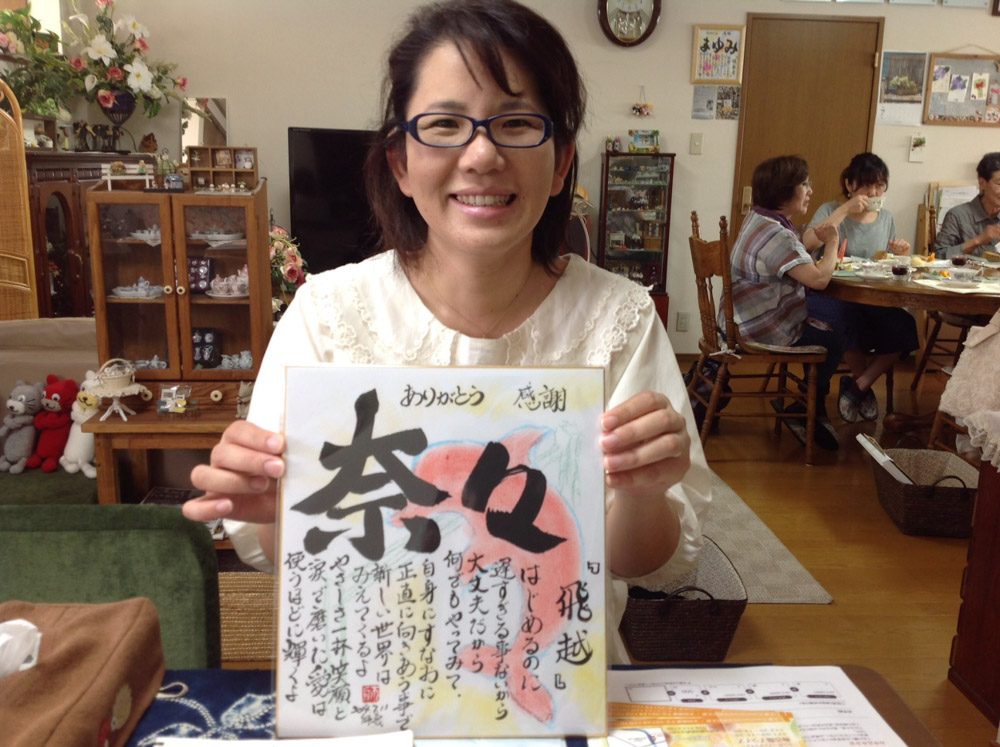 ありがとう　感謝
奈々
『飛越』
はじめるのに
遅すぎる事ないから
大丈夫だから
何でもやってみて
自身にすなおに
正直に向きあう事で
新しい世界は
みえてくるよ
やさしさ一杯笑顔と
涙で磨いた愛は
使うほどに輝くよ
まゆみ